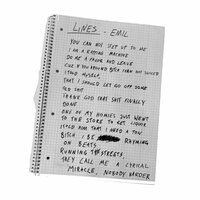 LINES - EMIL
YOU CAN NOT STEP UP TO ME
I AM A RAPPING MACHINE
DO ME A FAVOR AND LEAVE
CUZ IF YOU AROUND BITCH
I TOLD MYSELF
THAT I SHOULD LET GO OFF SOME
OLD SHIT
THANK GOD THAT SHIT FINALLY
DONE
ONE OF MY HOMIES JUST WENT
TO THE STORE TO GET LIQUOR
TOLD HIM THAT I NEED A TOW
BITCH, I BE RHYMING
ON BEATS
RUNNING THE STREETS
THEY CALL ME A LYRICAL
MIRACLE, NOBODY HARDER